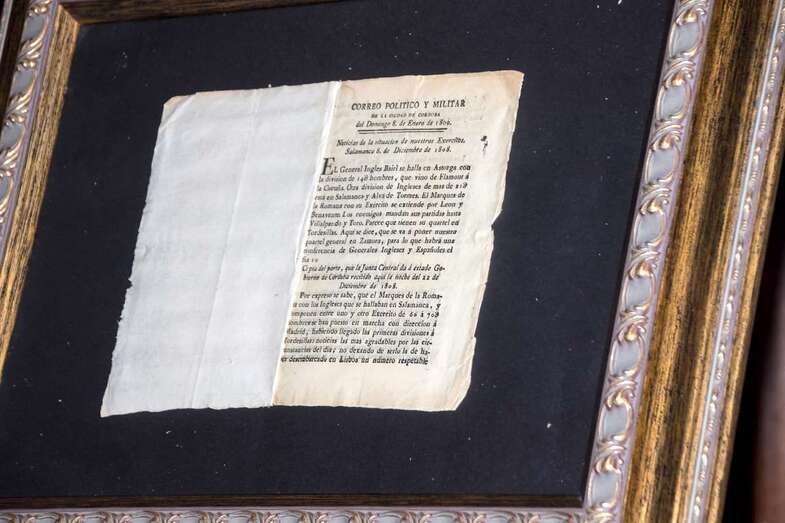 CORREO POLITICO Y MILITAR
DE LA CIUDAD DE CORDOBA
del Domingo 8. de Enero de 1809.
Noticias de la situacion de nuestros Exercitos.
Salamanca 6. de Diciembre de 1808.
EL General Ingles Bairl se halla en Astorga con
la division de 14θ hombres, que vino de
la Coruña. Otra division de Ingleses de mas de
está en Salamanca y Alva de Tormes. El Marques de
la Romana con su Exercito se extiende por Leon y
Benavente. Los enemigos mandan sus partidas hasta
Villalpando y Toro. Parece que tienen su quartel en
Tordesillas. Aqui se dice, que se va á poner nuestro
quartel general en Zamora, para lo que habrá una
conferencia de Generales Ingleses y Españoles el
dia 10
Copia del parte, que la Junta Central da á este Go-
bierno de Cordoba recibido aqui la noche del 22 de
Diciembre de 1808.
Por expreso se sabe, que el Marques de la Roma-
na con los Ingleses que se hallaban en Salamanca, y
componen entre uno y otro Exercito de 66 á 70θ
hombres se han puesto en marcha con direccion á
Madrid; habiendo llegado las primeras divisiones á
Tordesillas: noticias las mas agradables por las cir-
cunstancias del dia; no dexando de serlo la de ha-
ber desembarcado en Lisboa un número respetable